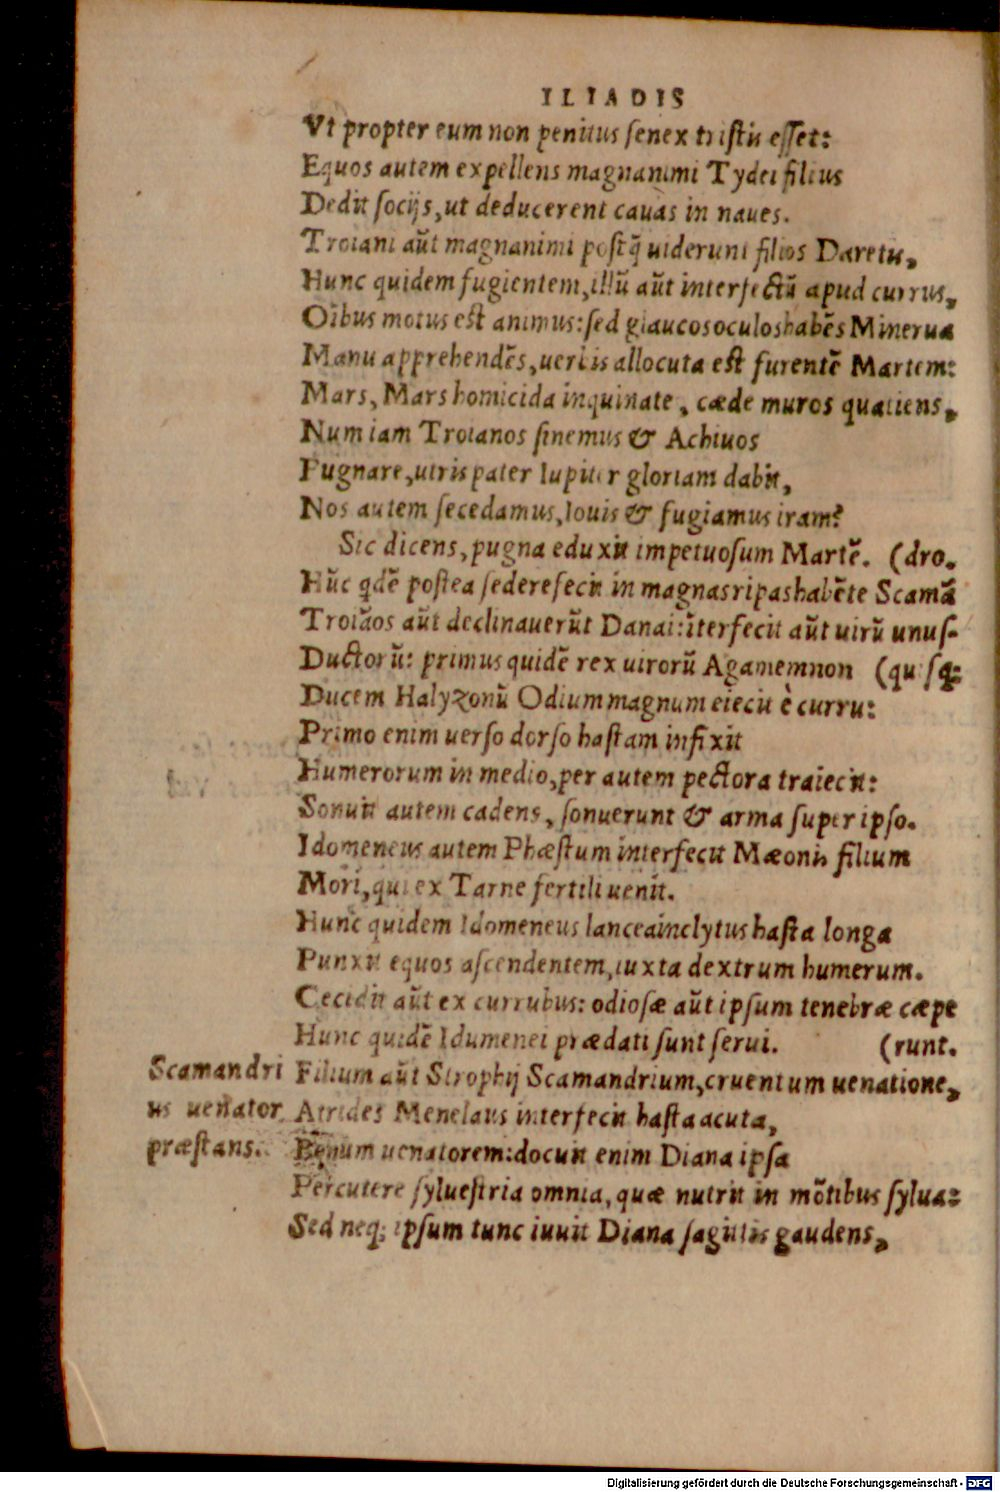 ILIADIS
Vt propter eum non penitus senex tristis esset:
Equos autem expellens magnanimi Tydei filius
Dedit socijs, ut deducerent cauas in naues.
Troiani aūt magnanimi postq̄ uiderunt filios Daretis,
Hunc quidem fugientem, illū aūt interfectū apud currus,
Oībus motus est animus: sed glaucos oculos habēs Minerua
Manu apprehendēs, uerbis allocuta est furentē Martem:
Mars, Mars homicida inquinate, cæde muros quatiens,
Num iam Troianos sinemus & Achiuos
Pugnare, utris pater Iupiter gloriam dabit,
Nos autem secedamus, Iouis & fugiamus iram?
Sic dicens, pugna eduxit impetuosum Martē. (dro.
Hūc qdē postea sedere fecit in magnas ripas habēte Scamā
Troiāos aūt declinauerūt Danai: īterfecit aūt uirū unus-
Ductorū: primus quidē rex uirorū Agamemnon (quisq;
Ducem Halyzonū Odium magnum eiecit è curru:
Primo enim uerso dorso hastam infixit
Humerorum in medio, per autem pectora traiecit:
Sonuit autem cadens, sonuerunt & arma super ipso.
Idomeneus autem Phæstum interfecit Mæonis filium
Mori, qui ex Tarne fertili uenit.
Hunc quidem Idomeneus lancea inclytus hasta longa
Punxit equos ascendentem, iuxta dextrum humerum.
Cecidit aūt ex curribus: odiosæ aūt ipsum tenebræ cæpe
Hunc quidē Idumenei prædati sunt serui. (runt.
Scamandri Filium aūt Strophij Scamandrium, cruentum uenatione,
us uenator Atrides Menelaus interfecit hasta acuta,
præstans. Bonum uenatorem: docuit enim Diana ipsa
Percutere syluestria omnia, quæ nutrit in mōtibus sylua:
Sed neq; ipsum tunc iuuit Diana sagittis gaudens,
Digitalisierung gefördert durch die Deutsche Forschungsgemeinschaft - DFG